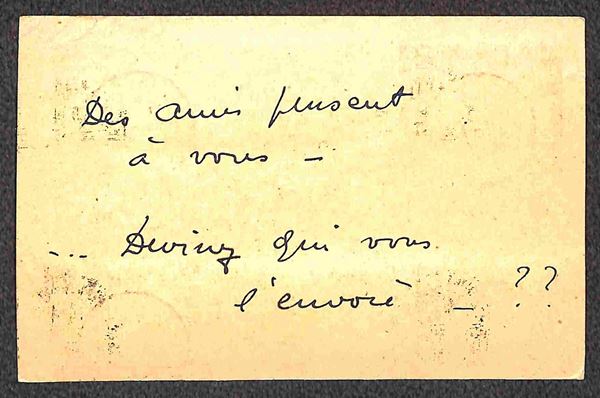 Des amis pensent
à vous —
... Devinez qui vous
l'envoie — ??